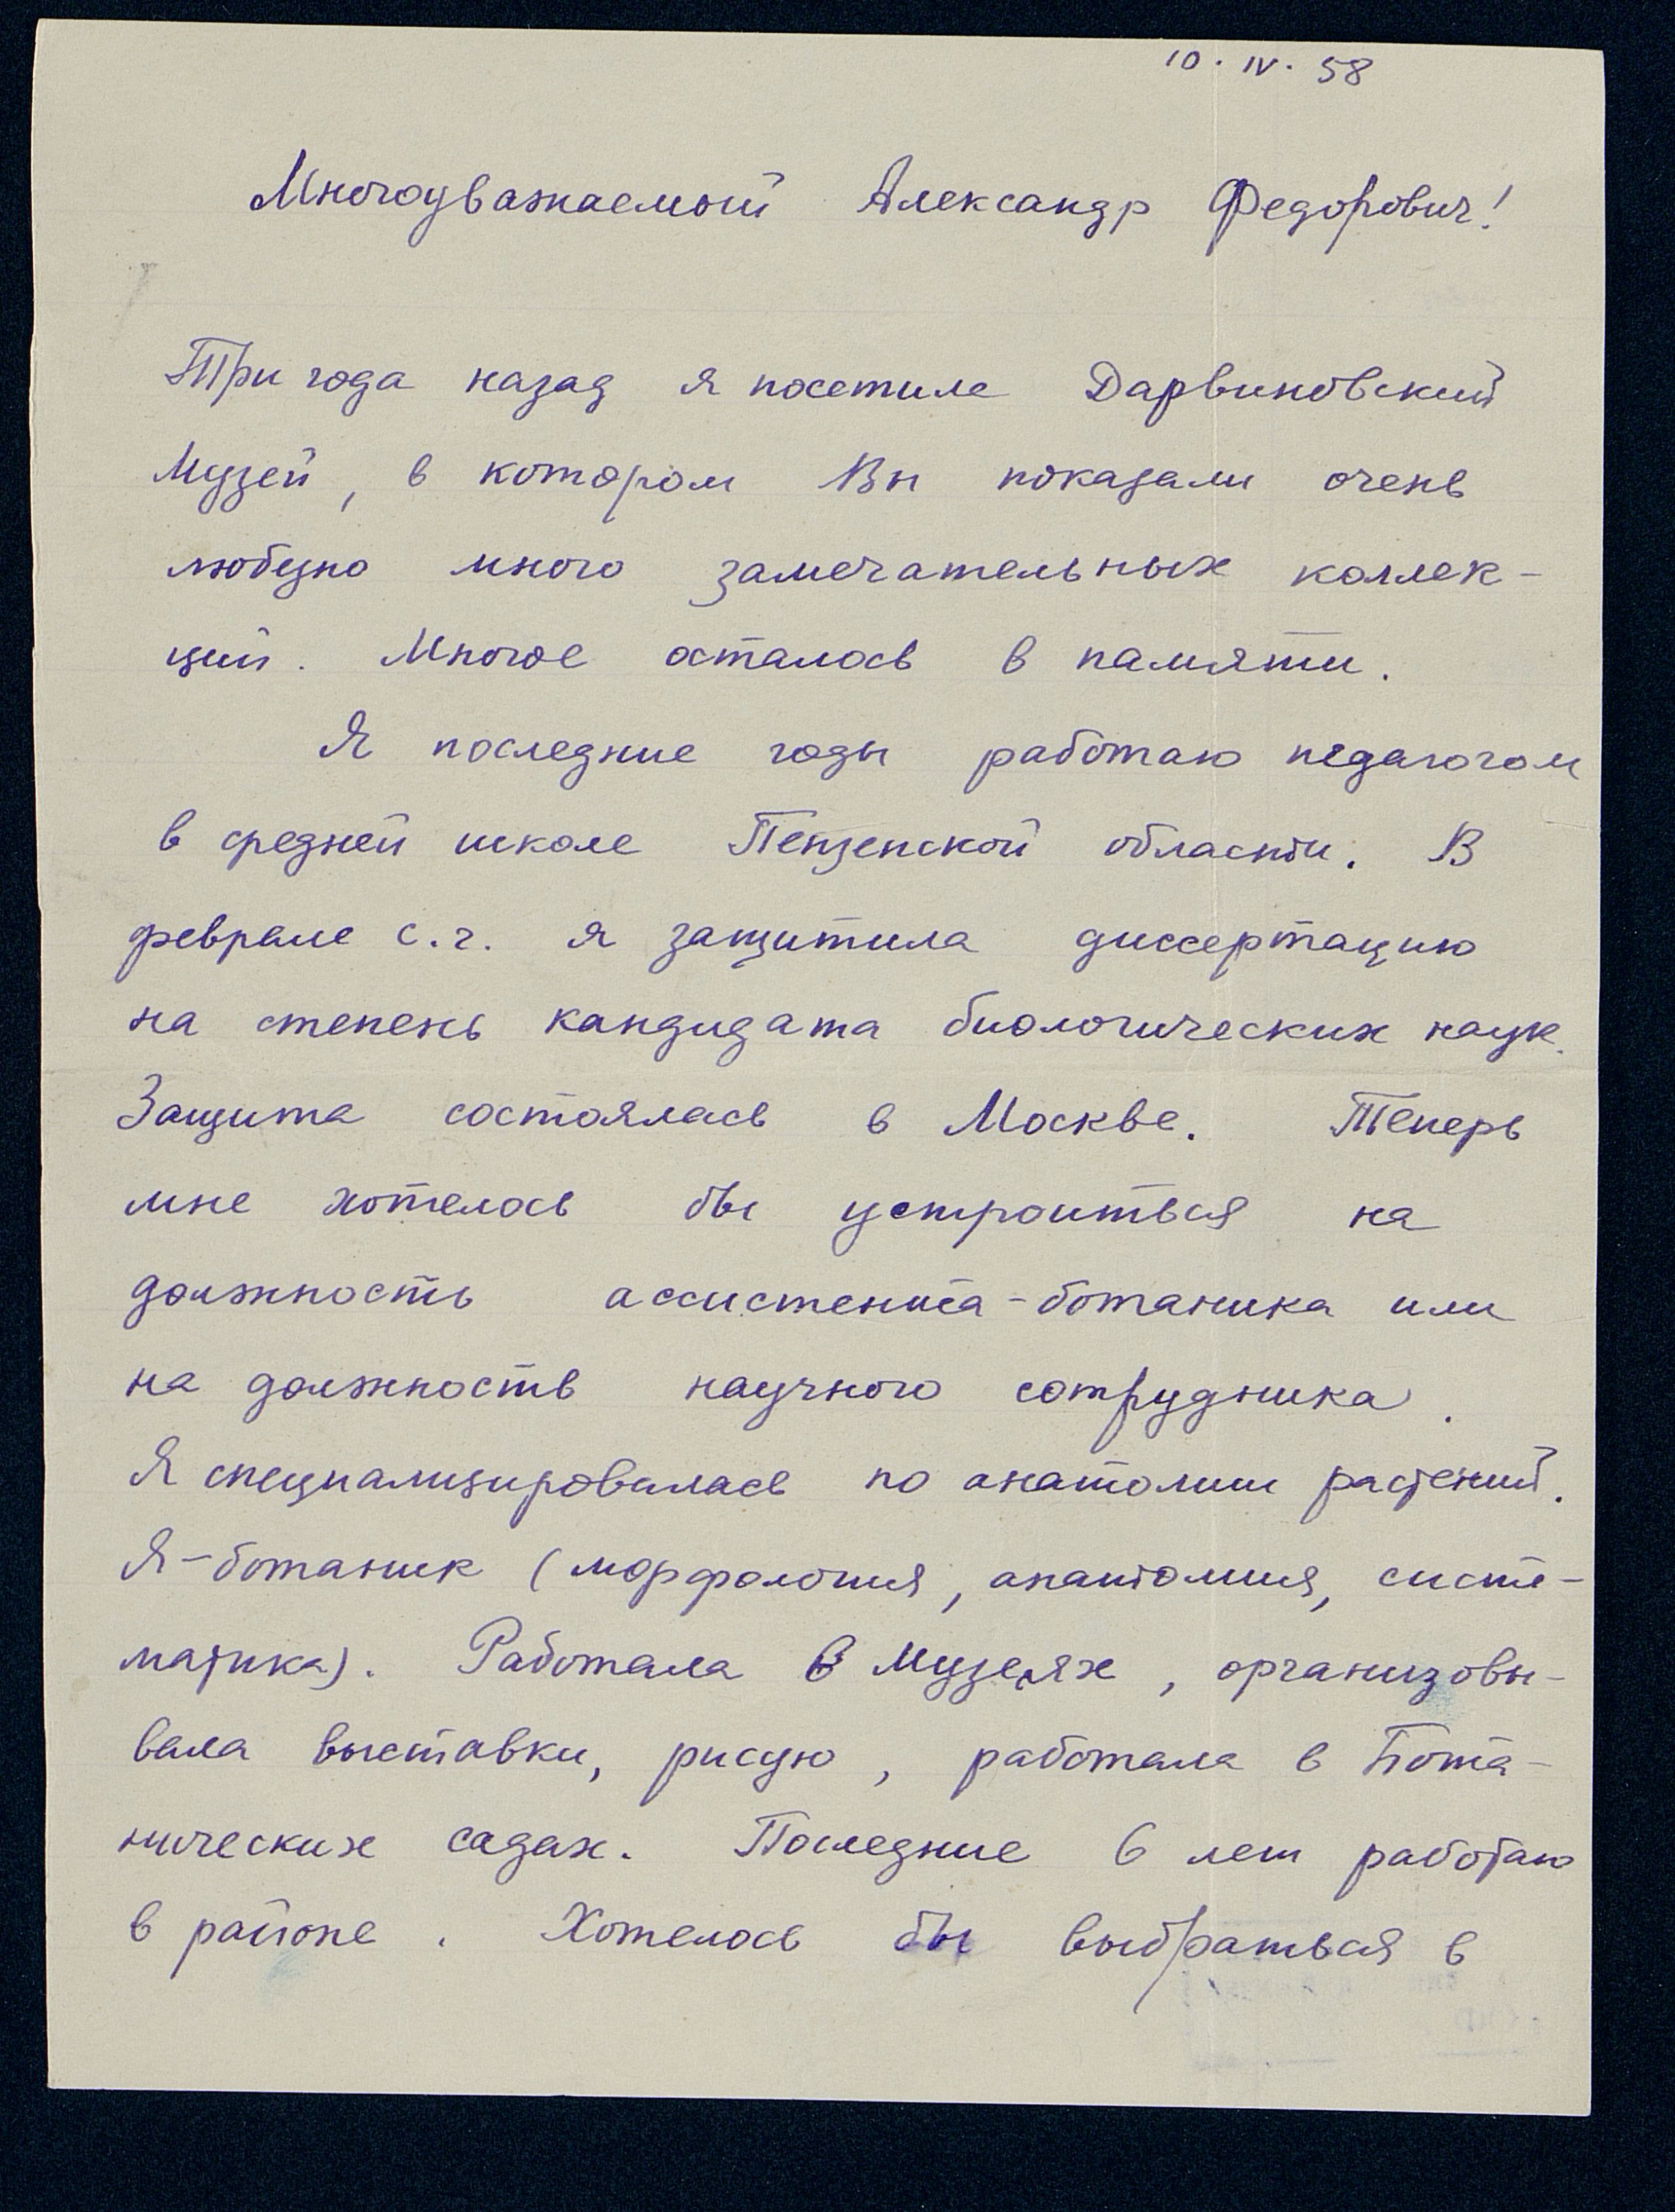 10. IV. 58
Многоуважаемый Александр Федорович!
Три года назад я посетила Дарвиновский
Музей, в котором Вы показали очень
любезно много замечательных коллек-
ций. Многое осталось в памяти.
Я последние годы работаю педагогом
в средней школе Пензенской области. В
феврале с.г. я защитила диссертацию
на степень кандидата биологических наук.
Защита состоялась в Москве. Теперь
мне хотелось бы устроиться на
должность ассистента-ботаника или
на должность научного сотрудника.
Я специализировалась по анатомии растений.
Я-ботаник (морфология, анатомия, систе-
матика). Работала в Музеях, организовы-
вала выставки, рисую, работала в Бота-
нических садах. Последние 6 лет работаю
в районе. Хотелось бы выбраться в